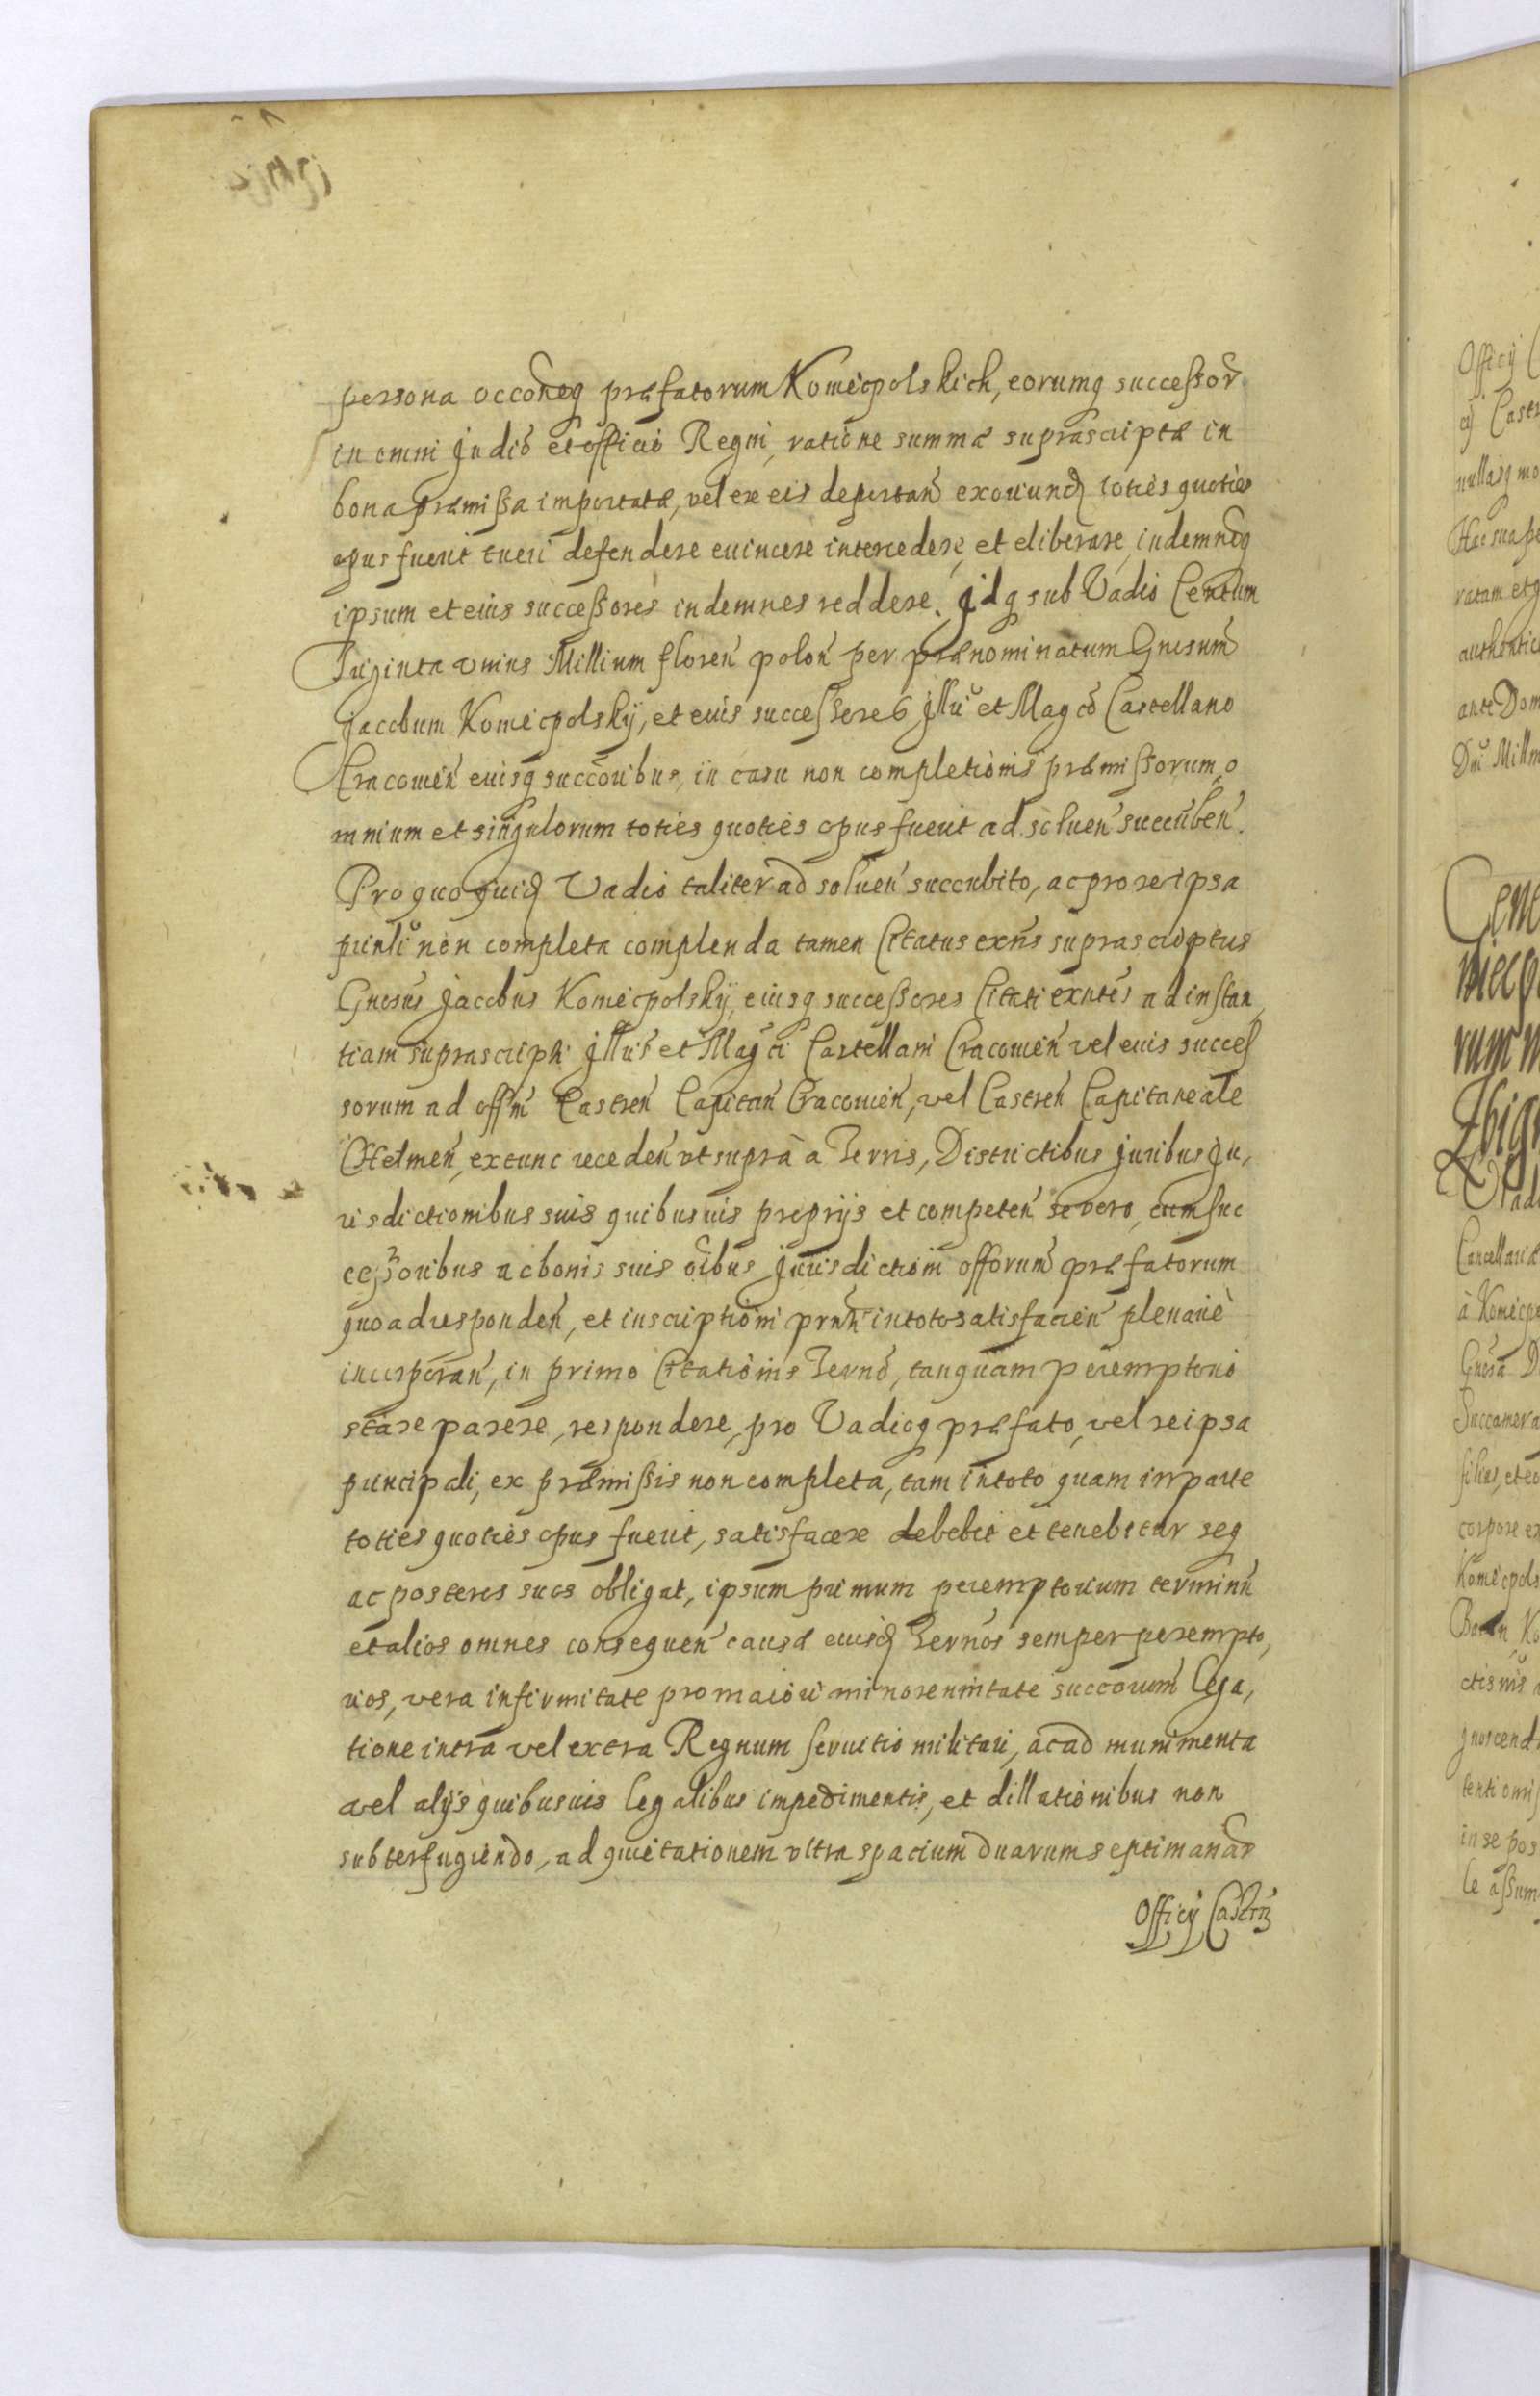 persona occōneq̨ præfatorum Koniecpolskich, eorumq̨ successor̄
in omni Judīo et officio Regni, ratione summæ suprascriptæ in
bona præmissa importatæ, vel ex eis deportan̄ exoriund̨ toties quoties
opus fuerit tueri defendere euincere intercedere, et eliberare, indemnēq̨
ipsum et eius successores indemnes reddere. Jdq̨ sub Vadio Centum
Triginta vnius Millium floren̄ polon̄ per prænominatum Gnrsum̄
Jacobum Koniecpolskÿ, et eius successores Jllrī et Magcō Castellano
Cracouien̄ eiusq̨ succōribus, in casu non completionis præmissorum, o
mnium et singulorum toties quoties opus fuerit ad soluen̄ succuben̄.
Pro quo quid̨ Vadio taliter ad soluen̄ succubito, ac pro re ipsa
prinlī non completa complenda tamen Citatus exn̄s suprascriptus
Gnrsus̄ Jacobus Koniecpolskÿ, eiusq̨ successores Citati exn̄tes ad instan,
tiam suprascripti Jllrīs et Magci Castellani Cracouien̄ vel eius succes
sorum ad offm̄ Castren̄ Capitan̄ Cracouien̄, vel Castren̄ Capitaneale
Chelmen̄, extunc receden̄ vt suprà à Terris, Districtibus Juribus Ju,
risdictionibus suis quibusuis proprijs et competen̄ se vero, cum suc
cessoribus ac bonis suis oībus Jurisdictioni offōrum præfatorum
quoad responden̄, et inscriptioni prn̄ti in toto satisfacien̄ plenariè
incorporan̄, in primo Citationis Termō, tanquam peremptorio
stare parere, respondere, pro Vadioq̨ præfato, vel re ipsa
principali, ex præmissis non completa, tam in toto quam in parte
toties quoties opus fuerit, satisfacere debebit et tenebitur seq̨
ac posteros suos obligat, ipsum primum peremptorium terminū
et alios omnes consequen̄ causæ eiusd̨ Termōs semper perempto,
rios, vera infirmitate pro maiori minore nuntate succōrum Lega,
tione intra vel extra Regnum seruitio militari, ac ad munimenta
vel alijs quibusuis legalibus impedimentis, et dillationibus non
subterfugiendo, ad quietationem vltra spacium duarum septimanar̄
Officij Castrn̄